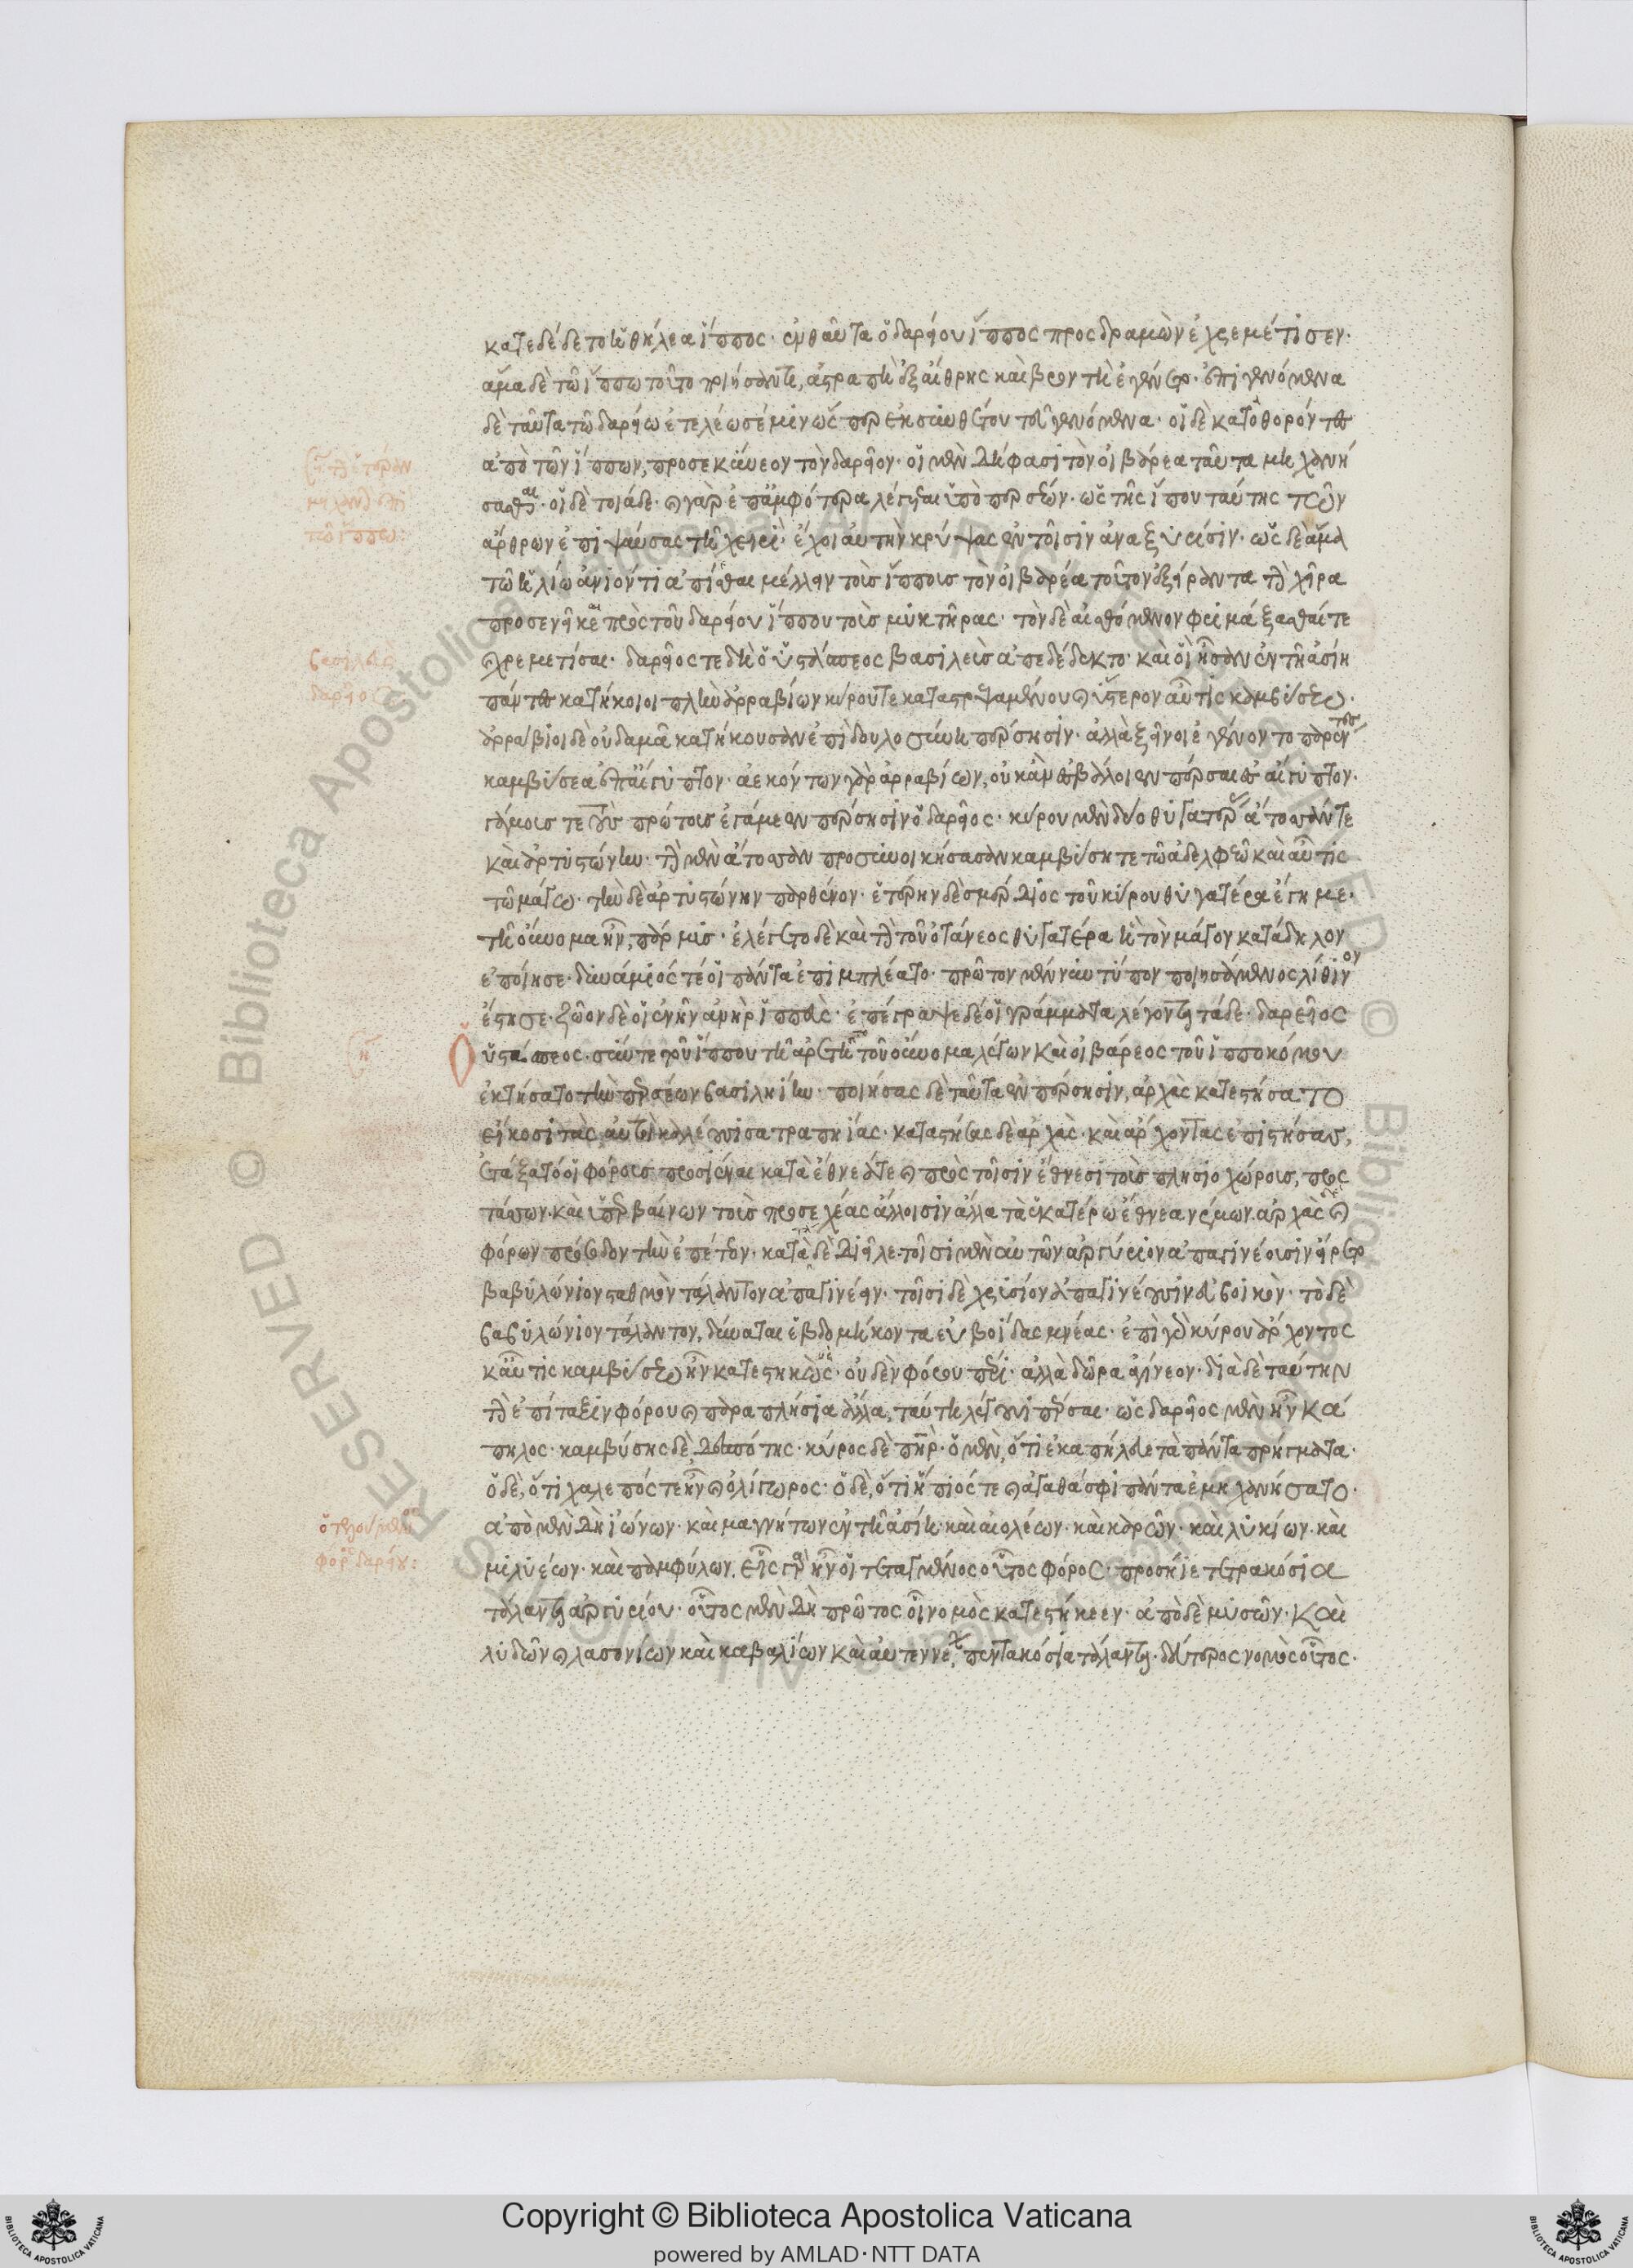 κατεδέδετο ἡ θήλεα ἵππος· ἐνθαῦτα ὁ δαρείου ἵππος προσδραμὼν ἐχρεμέτισεν·
ἅμα δὲ τῶ ἵππω τοῦτο ποιήσαντι, ἀστραπὴ ἐξ αἰθρης καὶ βροντὴ ἐγένετο· ἐπιγενόμενα
δὲ ταῦτα τῶ δαρείω ἐτελέωσέ μιν ὥσπερ ἐκ συνθέτου τευ γενόμενα· οἱ δὲ καταθορόντες
ἀπὸ τῶν ἵππων, προσεκύνεον τὸν δαρεῖον· οἱ μὲν δή φασι τὸν οἰβάρεα ταῦτα μηχανή
σασθαι· οἱ δὲ τοιάδε· καὶ γὰρ ἐπ' ἀμφότερα λέγεται ὑπὸ περσέων· ὡς τῆς ἵππου ταύτης τῶν
ἄρθρων ἐπιψαύσας τῆ χειρὶ ἔχοι αὐτὴν κρύψας ἐν τοῖσιν ἀναξυρίσιν· ὡς δὲ ἅμα
τῶ ἡλίω ἀνιόντι ἀπίεσθαι μέλλειν τοὺς ἵππους τὸν οἰβάρεα τοῦτον ἐξείραντα τὴν χεῖρα
προσενεῖκαι πρὸς τοῦ δαρείου ἵππου τοὺς μυκτῆρας· τὸν δὲ αἰσθόμενον φριμάξασθαί τε
καὶ χρεμετίσαι· δαρεῖός τε δὴ ὁ ὑστάσπεος βασιλεὺς ἀπεδέδεκτο· καὶ οἱ ἦσαν ἐν τῆ ἀσίη
πάντες κατήκοοι πλὴν ἀρραβίων κύρου τε καταστρεψαμένου καὶ ὕστερον αὖτις καμβύσεω·
ἀρράβιοι δὲ οὐδαμᾶ κατήκουσαν ἐπὶ δουλοσύνη πέρσησιν· ἀλλὰ ξεῖνοι ἐγένοντο παρέντες
καμβύσεα ἐπ' αἴγυπτον· ἀεκόντων γὰρ ἀρραβίων, οὐκ ἂν ἐσβάλοιεν πέρσαι ἐς αἴγυπτον·
γάμους τε τοὺς πρώτους ἐγάμεεν πέρσησιν ὁ δαρεῖος· κύρου μὲν δύο θυγατέρας ἄτοσσάν τε
καὶ ἀρτυστώνην· τὴν μὲν ἄτοσσαν προσυνοικήσασαν καμβύση τε τῶ ἀδελφεῶ καὶ αὖτις
τῶ μάγω· τὴν δὲ ἀρτυστώνην παρθένον· ἑτέρην δὲ σμέρδιος τοῦ κύρου θυγατέρα ἔγημε·
τῆ οὔνομα ἦν, πάρμις· ἐλέγετο δὲ καὶ τὴν τοῦ ὀτάνεος θυγατέρα ἣ τὸν μάγον κατάδηλον
ἐποίησε· δυνάμιός τέ οἱ πάντα ἐπιμπλέατο· πρῶτον μέν νυν τύπον ποιησάμενος λίθινον
ἔστησε· ζῶον δὲ οἱ ἐνῆν ἀνὴρ ἱππεύς· ἐπέγραψε δέ οἱ γράμματα λέγοντα τάδε· δαρεῖος
ὁ ὑστάσπεος· σύν τε τοῦ ἵππου τῆ ἀρετῆ τὸ οὔνομα λέγων καὶ οἰβάρεος τοῦ ἱπποκόμου
ἐκτήσατο τὴν περσέων βασιληίην· ποιήσας δὲ ταῦτα ἐν πέρσησιν, ἀρχὰς κατεστήσατο
εἴκοσι τὰς αὐτοὶ καλέουσι σατραπηίας· καταστήσας δὲ ἀρχὰς· καὶ ἄρχοντας ἐπιστήσας,
ἐτάξατό οἱ φόρους προσιέναι κατὰ ἔθνεά τε καὶ πρὸς τοῖσιν ἔθνεσι τοὺς πλησιοχώρους, προς
τάσσων· καὶ ὑπερβαίνων τοὺς προσεχέας ἄλλοισιν ἄλλα τὰ ἑκατέρω ἔθνεα νέμων. ἀρχὰς δὲ καὶ
φόρων πρόσοδον τὴν ἐπέτειον· κατὰ τάδε διεῖλε· τοῖσι μὲν αὐτῶν ἀργύριον ἀπαγινέουσιν εἴρητο
βαβυλώνιον σταθμὸν τάλαντον ἀπαγινέειν· τοῖσι δὲ χρυσίον ἀπαγινέουσιν εὐβοικὸν· τὸ δὲ
βαβυλώνιον τάλαντον, δύναται ἑβδομήκοντα εὐβοίδας μνέας· ἐπὶ γὰρ κύρου ἄρχοντος
καὶ αὖτις καμβύσεω ἦν κατεστηκὼς οὐδὲν φόρου πέρι· ἀλλὰ δῶρα ἀγίνεον· διὰ δὲ ταύτην
τὴν ἐπίταξιν φόρου καὶ παραπλήσια ἄλλα, ταύτη λέγουσι πέρσαι· ὡς δαρεῖος μὲν ἦν κά
πηλος· καμβύσης δὲ δεσπότης· κύρος δὲ πατήρ· ὁ μὲν, ὅτι ἐκαπήλευε τὰ πάντα πρήγματα·
ὁ δὲ, ὅτι χαλεπός τε ἦν καὶ ὀλίγωρος· ὁ δὲ, ὅτι ἤπιός τε καὶ ἀγαθά σφι πάντα ἐμηχανήσατο·
ἀπὸ μὲν δὴ ἰώνων· καὶ μαγνήτων ἐν τῆ ἀσίη· καὶ αἰολέων· καὶ καρῶν· καὶ λυκίων· καὶ
μιλυέων· καὶ παμφύλων. εἷς γὰρ ἦν οἱ τεταγμένος οὗτος φόρος· προσήιε τετρακόσια
τάλαντα ἀργυρίου· οὗτος μὲν δὴ πρῶτος οἱ νομὸς κατεστήκεεν· ἀπὸ δὲ μυσῶν· καὶ
λυδῶν καὶ λασονίων καὶ καβαλίων καὶ αὑτεννέων, πεντακόσια τάλαντα· δεύτερος νομὸς οὗτος·
βασιλεὺς
δαρεῖος